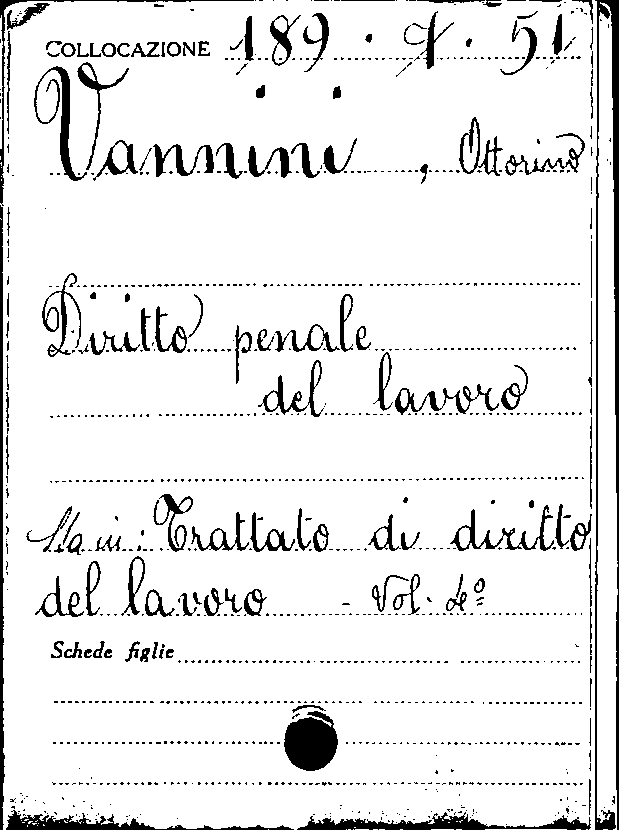 COLLOCAZIONE 189 · 4 · 51
Vannini, Ottorino
Diritto penale
del lavoro
Sta in: Trattato di diritto
del lavoro - Vol. 4º
Schede figlie